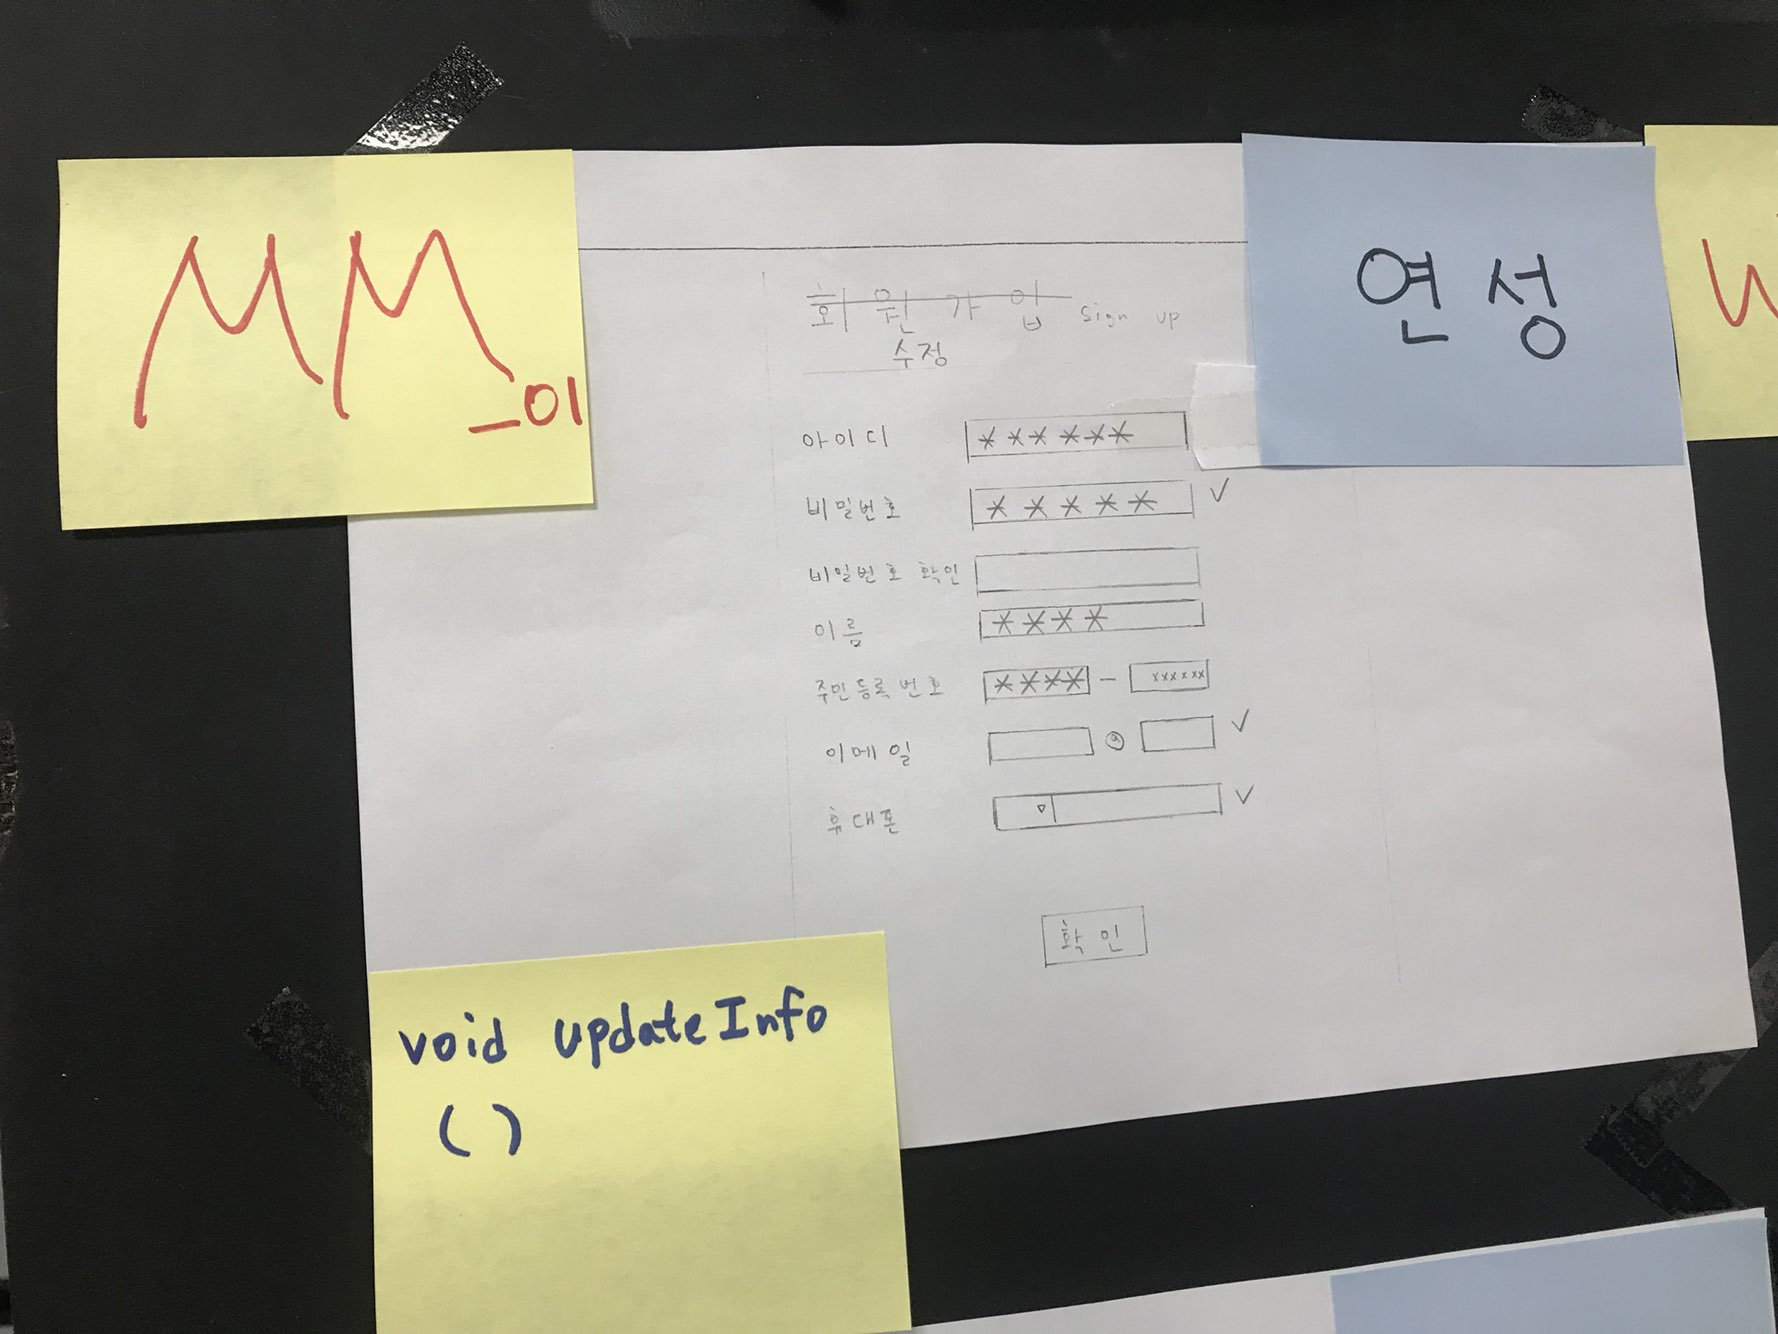 MM_01
연성
회원가입 Sign up
수정
아이디 ******
비밀번호 ***** ✓
비밀번호 확인
이름 ****
주민등록번호 **** - xxxxxx
이메일 @ ✓
휴대폰 ▽ ✓
확인
void updateInfo
( )